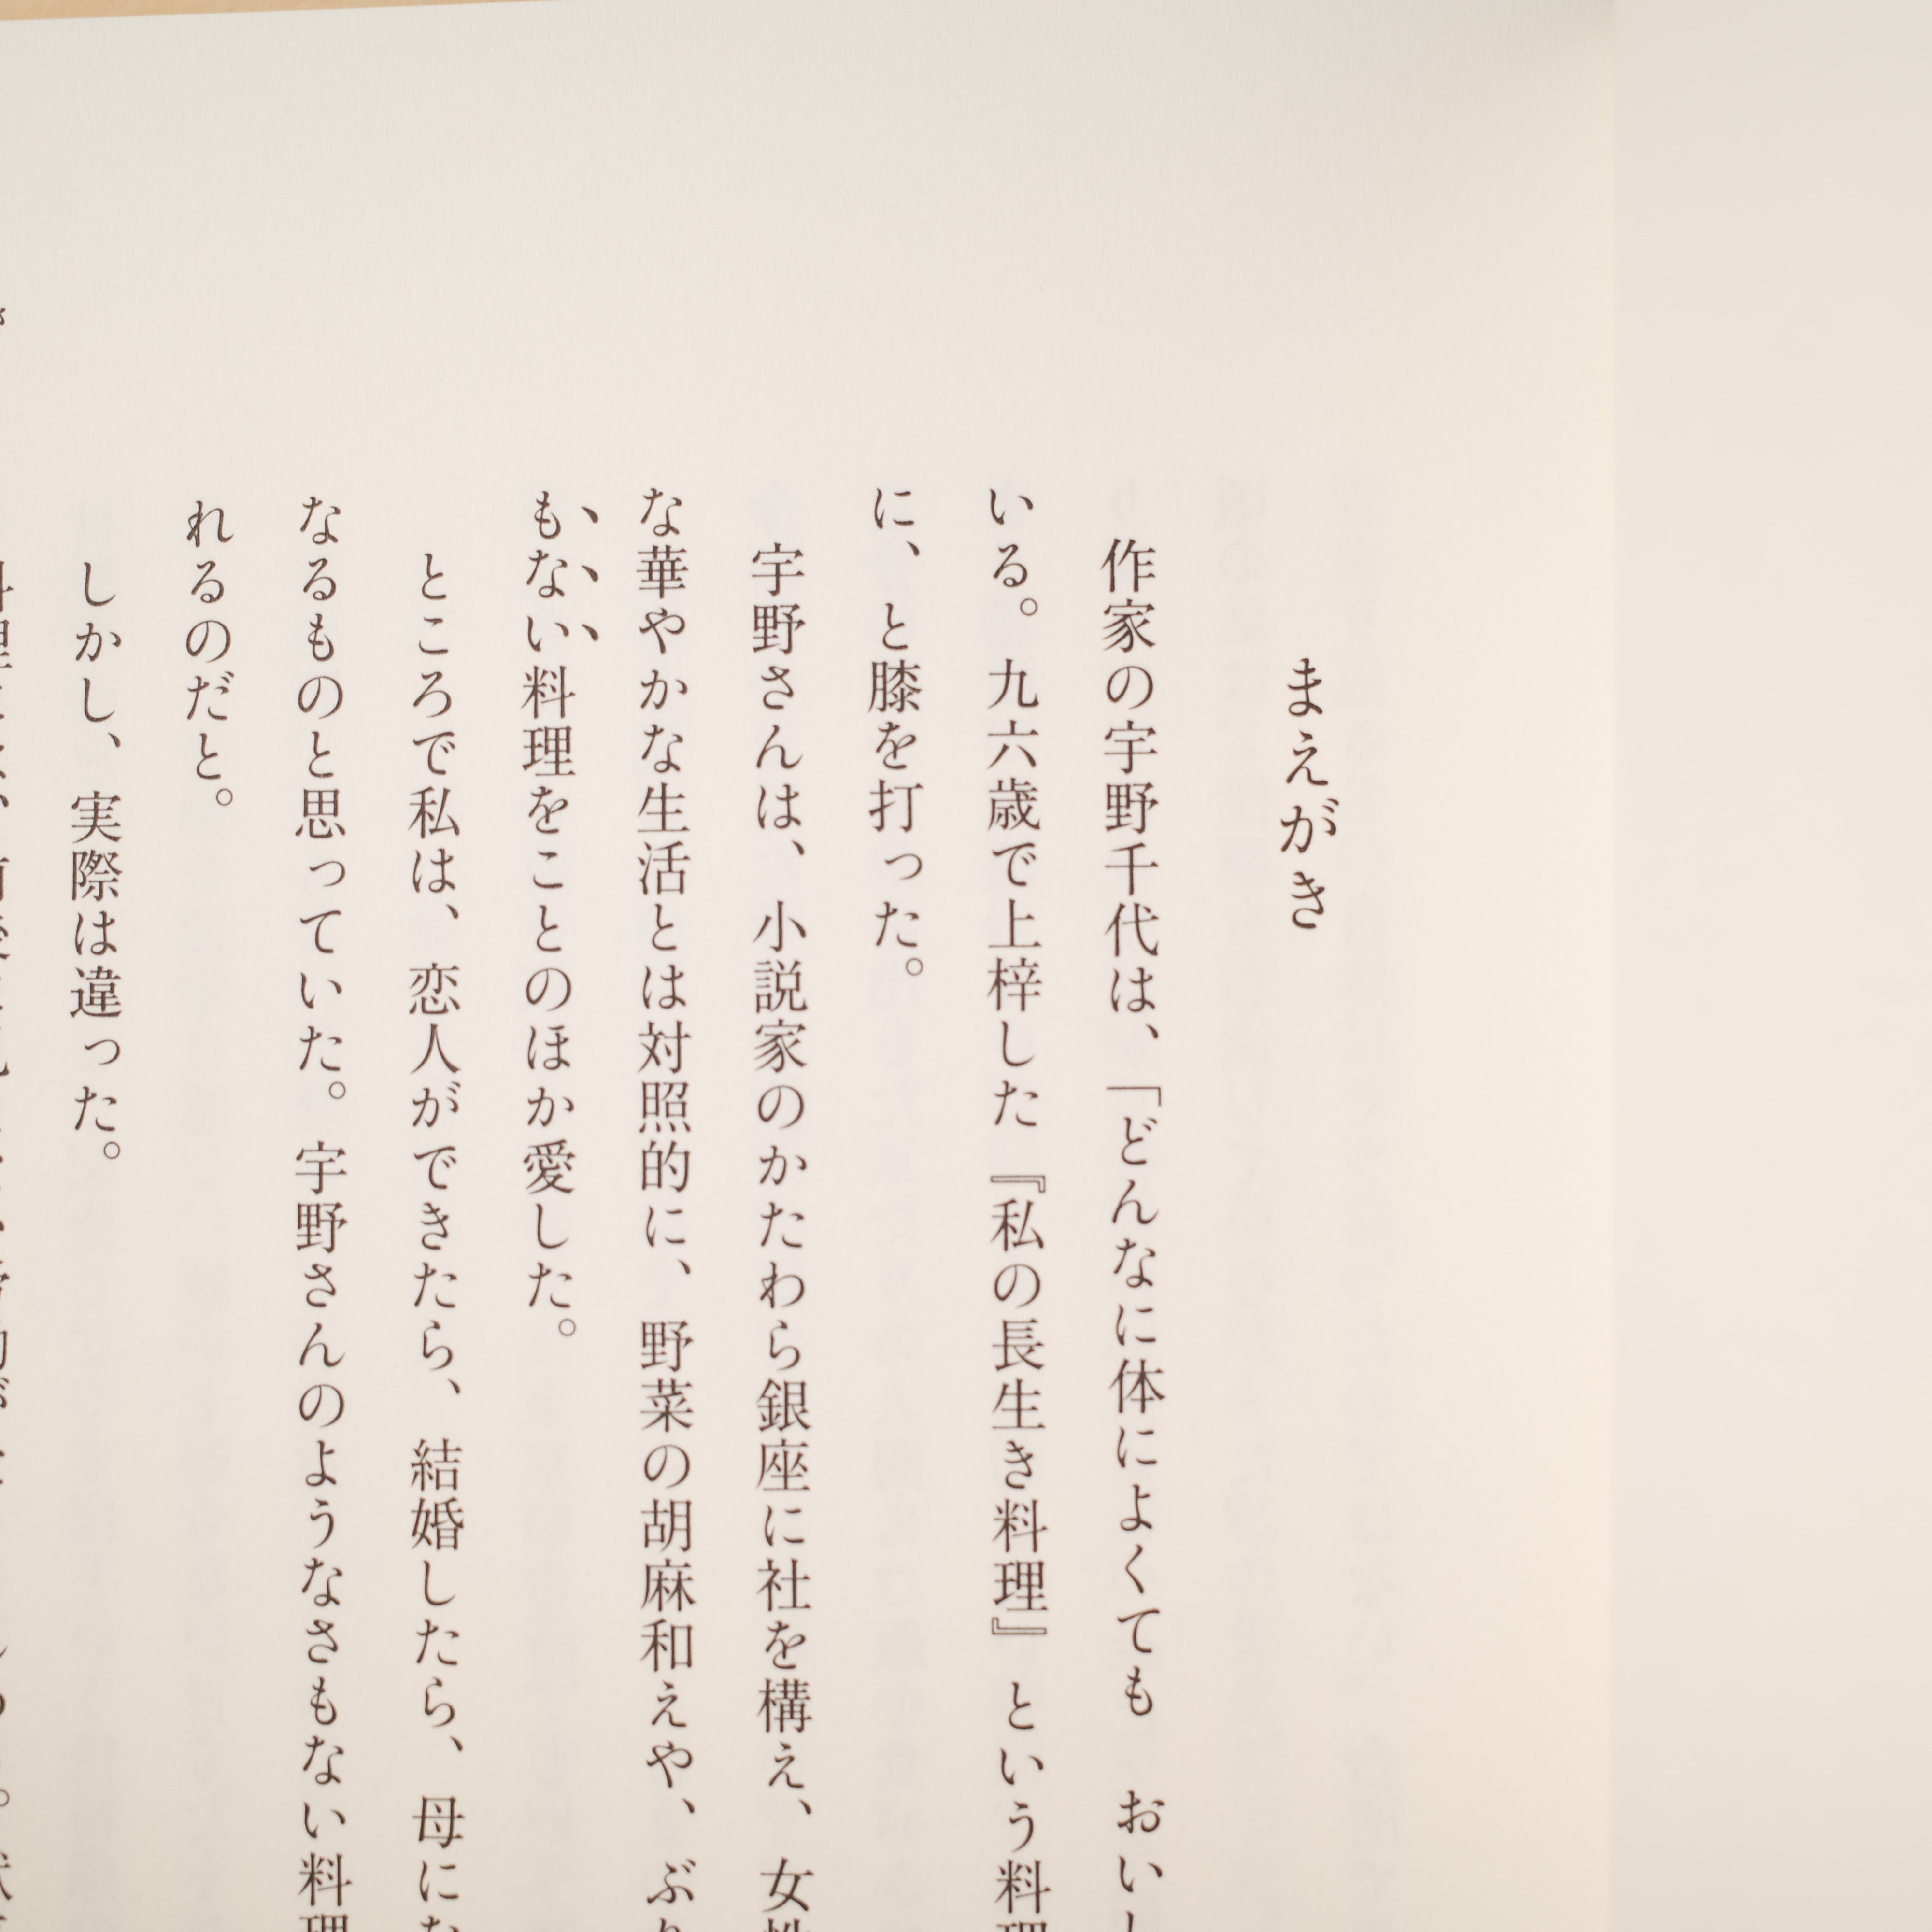 まえがき
作家の宇野千代は、「どんなに体によくても　おいし
いる。九六歳で上梓した『私の長生き料理』という料理
に、と膝を打った。
宇野さんは、小説家のかたわら銀座に社を構え、女性
な華やかな生活とは対照的に、野菜の胡麻和えや、ぶり
もない料理をことのほか愛した。
ところで私は、恋人ができたら、結婚したら、母にな
なるものと思っていた。宇野さんのようなさもない料理
れるのだと。
しかし、実際は違った。